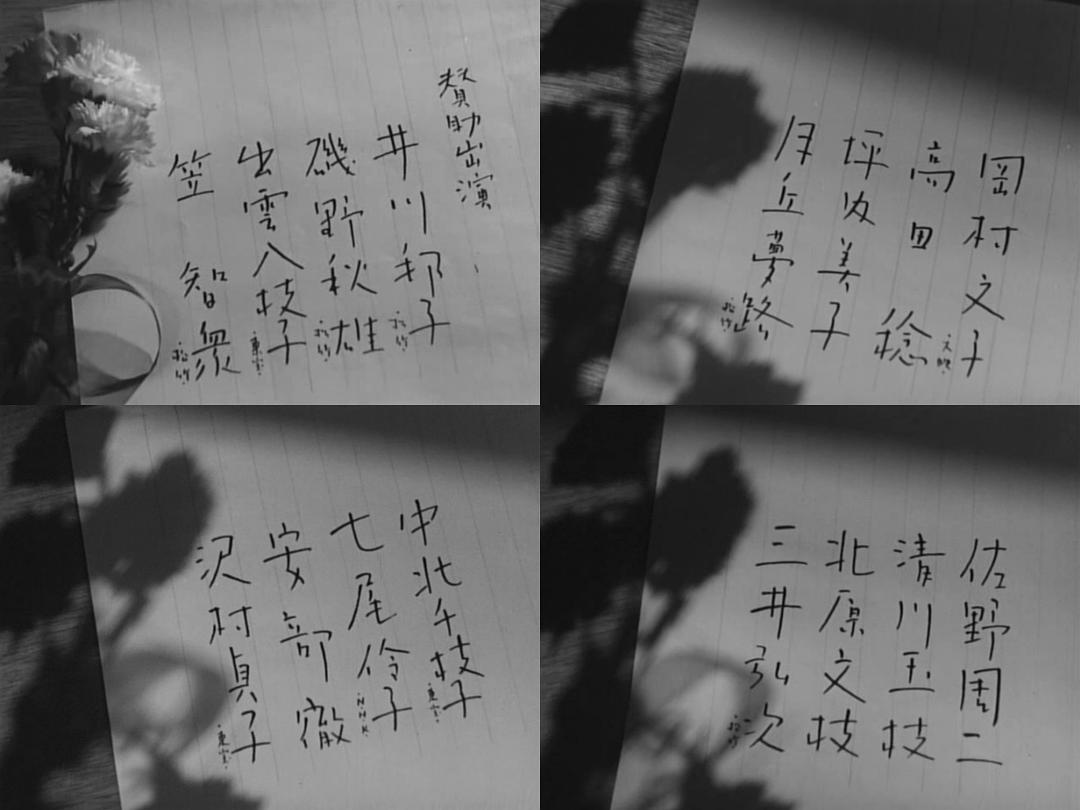 賛助出演
井川邦子
松竹
磯野秋雄
松竹
出雲八枝子
東宝
笠智衆
松竹
岡村文子
大映
高田稔
坪内美子
月丘夢路
松竹
中北千枝子
東宝
七尾伶子
N.H.K
安部徹
沢村貞子
東宝
佐野周二
清川玉枝
北原文枝
三井弘次
松竹